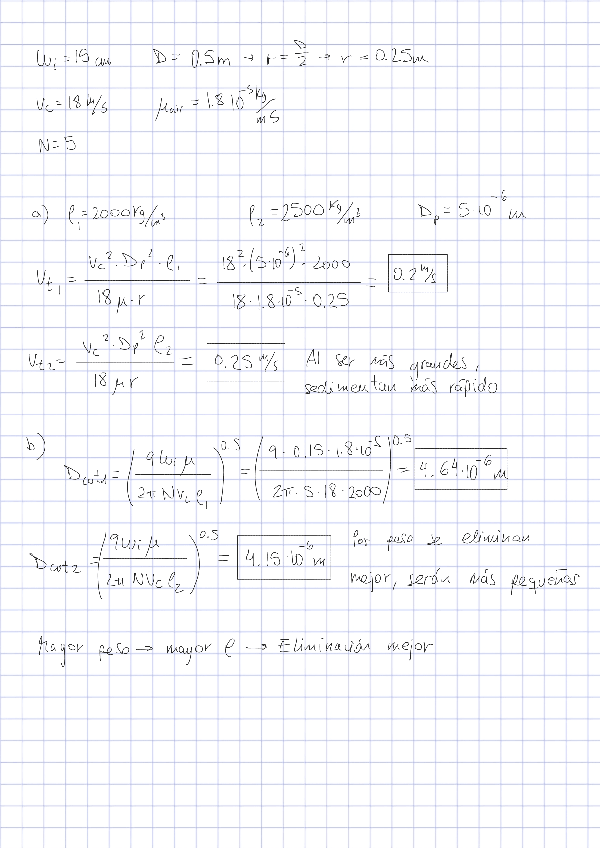 Wi = 15 cm D = 0.5 m → r = D/2 → r = 0.25 m
vc = 18 m/s μair = 1.8·10^-5 Kg/m s
N = 5
a) ρ1 = 2000 Kg/m³ ρ2 = 2500 Kg/m³ Dp = 5·10^-6 m
Vt1 = (vc²·Dp²·ρ1)/(18 μ·r) = (18²·(5·10^-6)²·2000)/(18·1.8·10^-5·0.25) = 0.2 m/s
Vt2 = (vc²·Dp² ρ2)/(18 μ r) = 0.25 m/s Al ser más grandes,
sedimentan más rápido
b) Dcut1 = ((9 wi μ)/(2π N vc ρ1))^0.5 = ((9·0.15·1.8·10^-5)/(2π·5·18·2000))^0.5 = 4.64·10^-6 m
Dcut2 = ((9 wi μ)/(2π N vc ρ2))^0.5 = 4.15·10^-6 m Por peso se eliminan
mejor, serán más pequeñas
Mayor peso → mayor ρ → Eliminación mejor